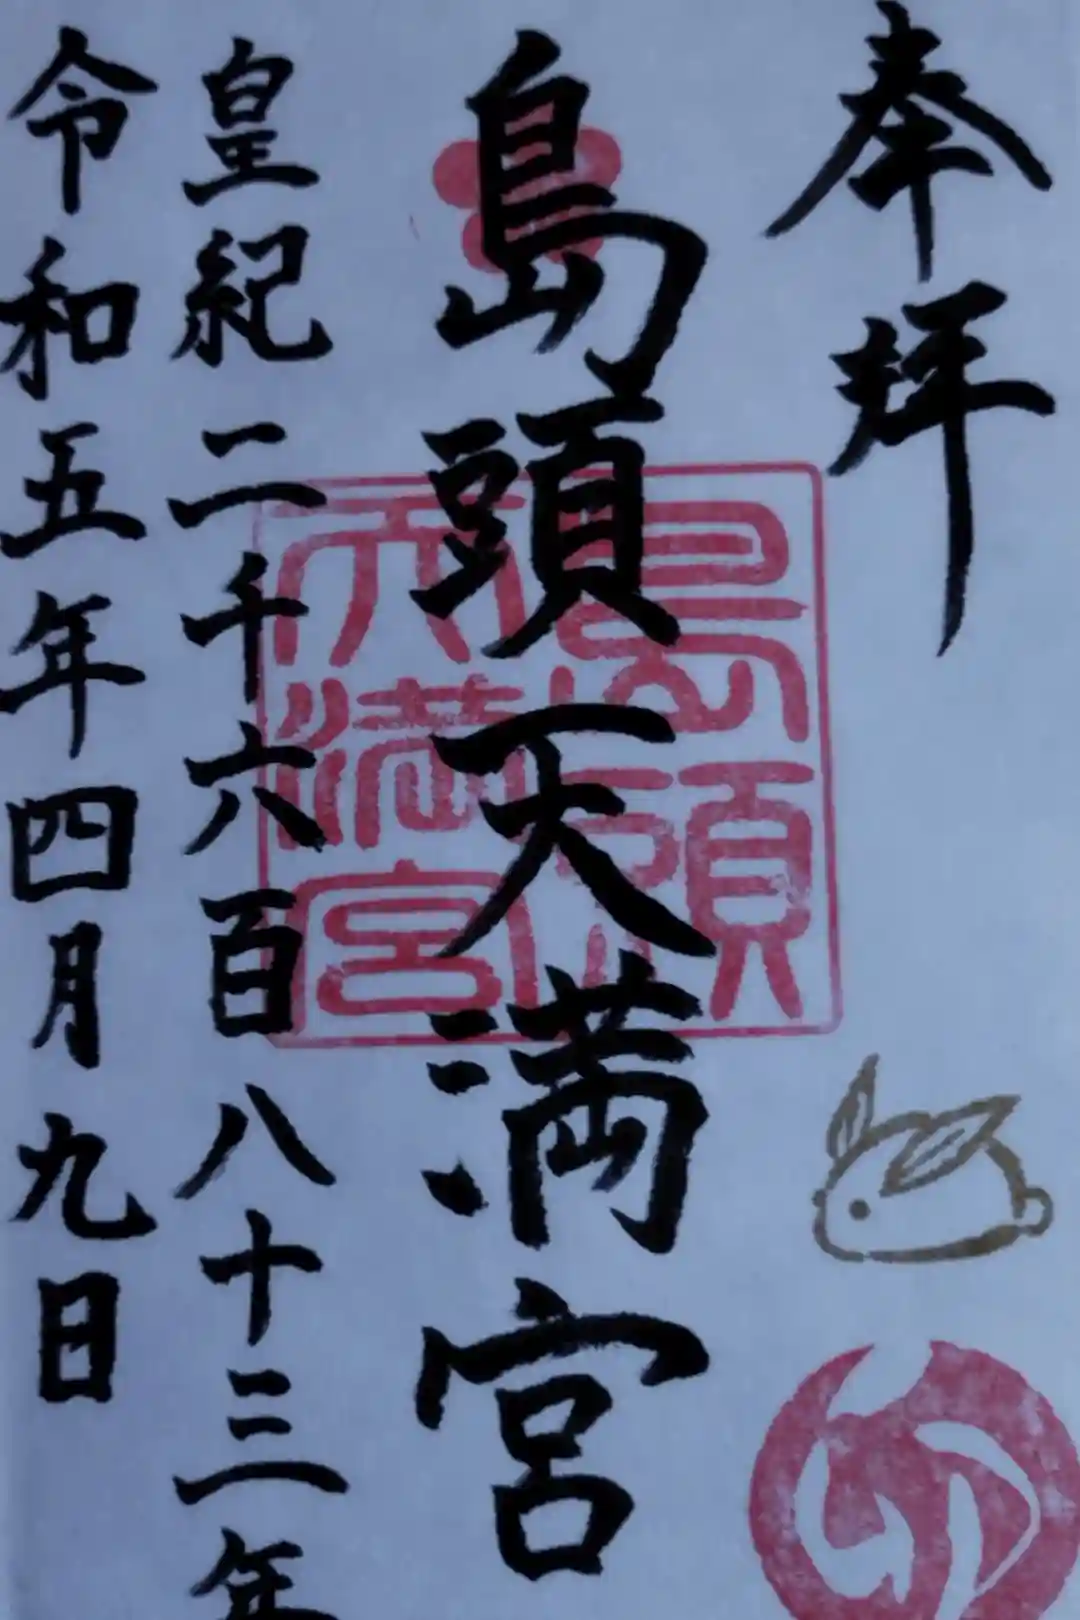 奉拝
島頭天満宮
皇紀二千六百八十三年
令和五年四月九日
島頭
天満宮
卯